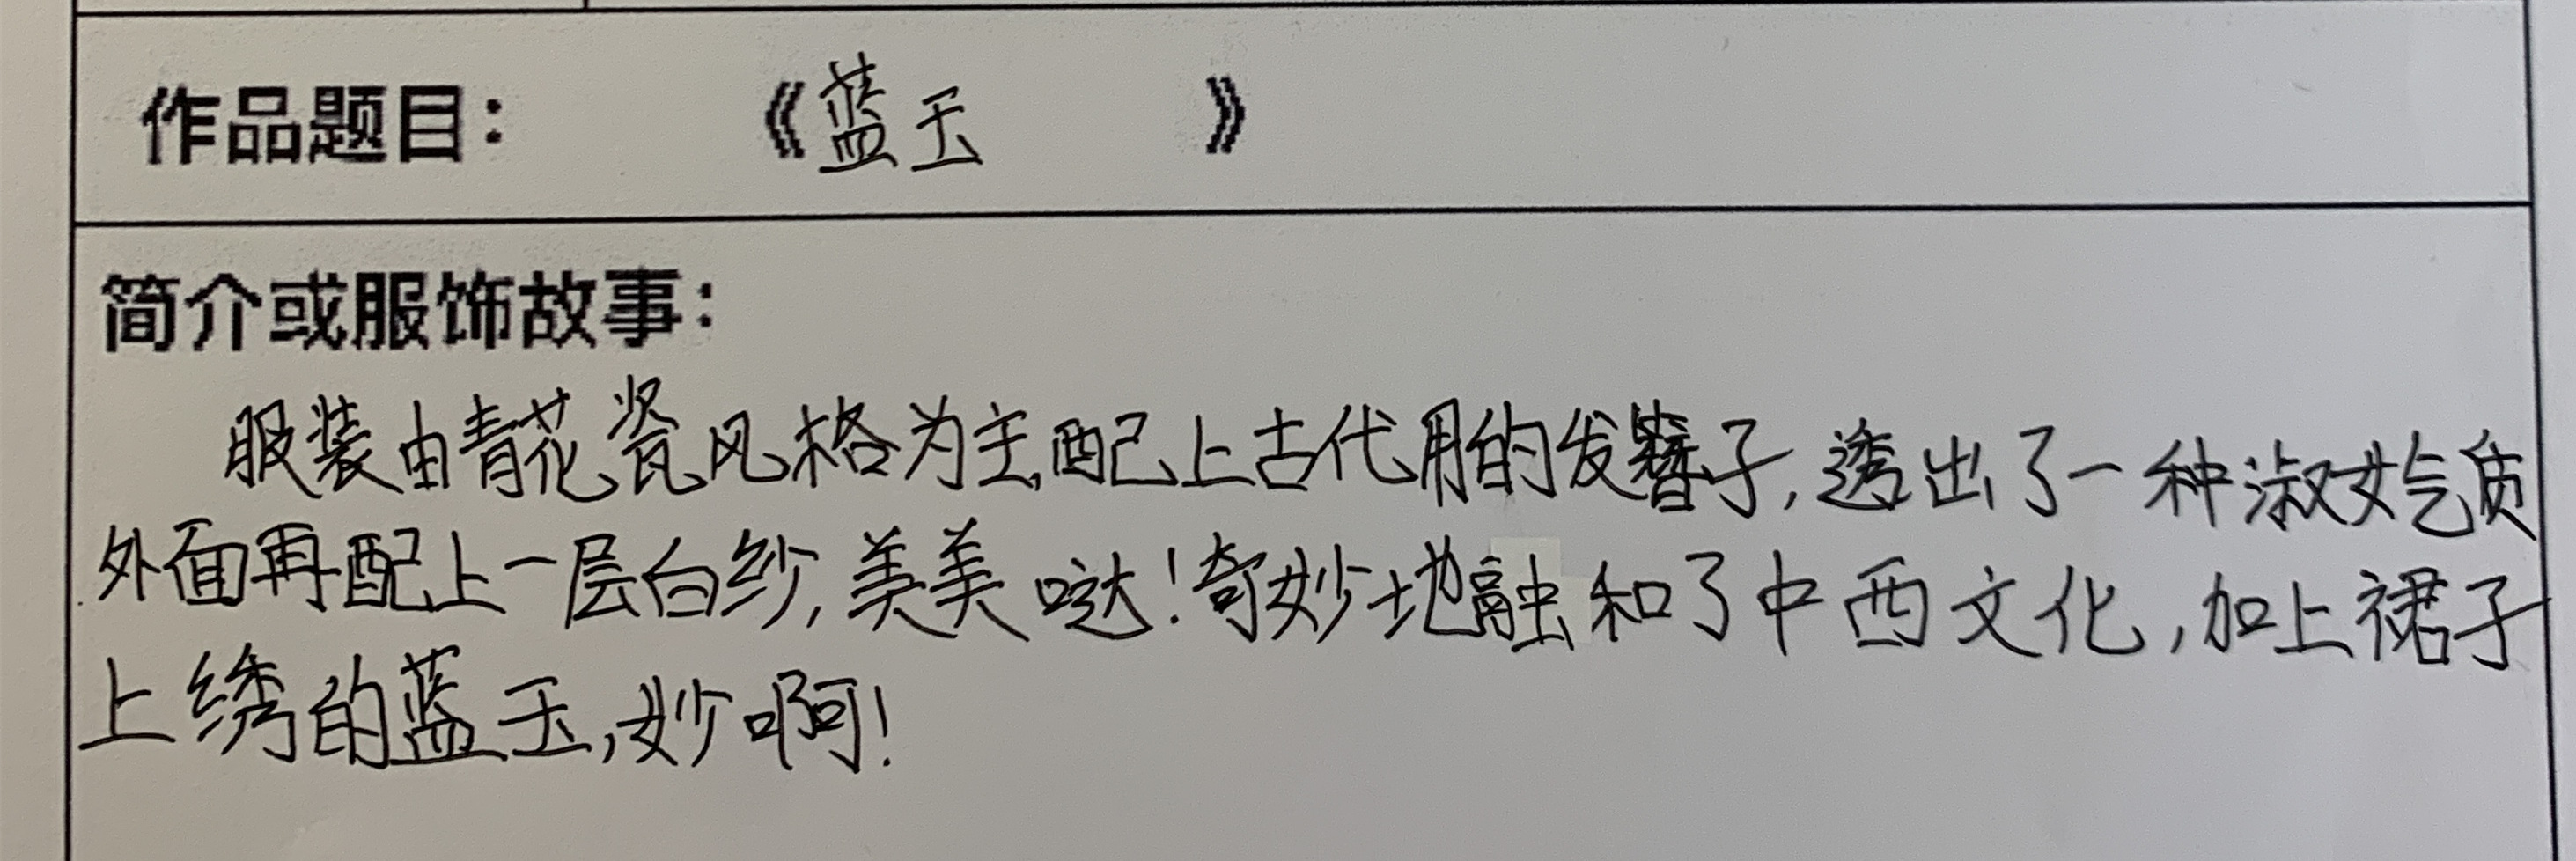 作品题目： 《蓝玉 》
简介或服饰故事：
服装由青花瓷风格为主,配上古代用的发簪子,透出了一种淑女气质
外面再配上一层白纱,美美哒!奇妙地融和了中西文化,加上裙子
上绣的蓝玉,妙啊!